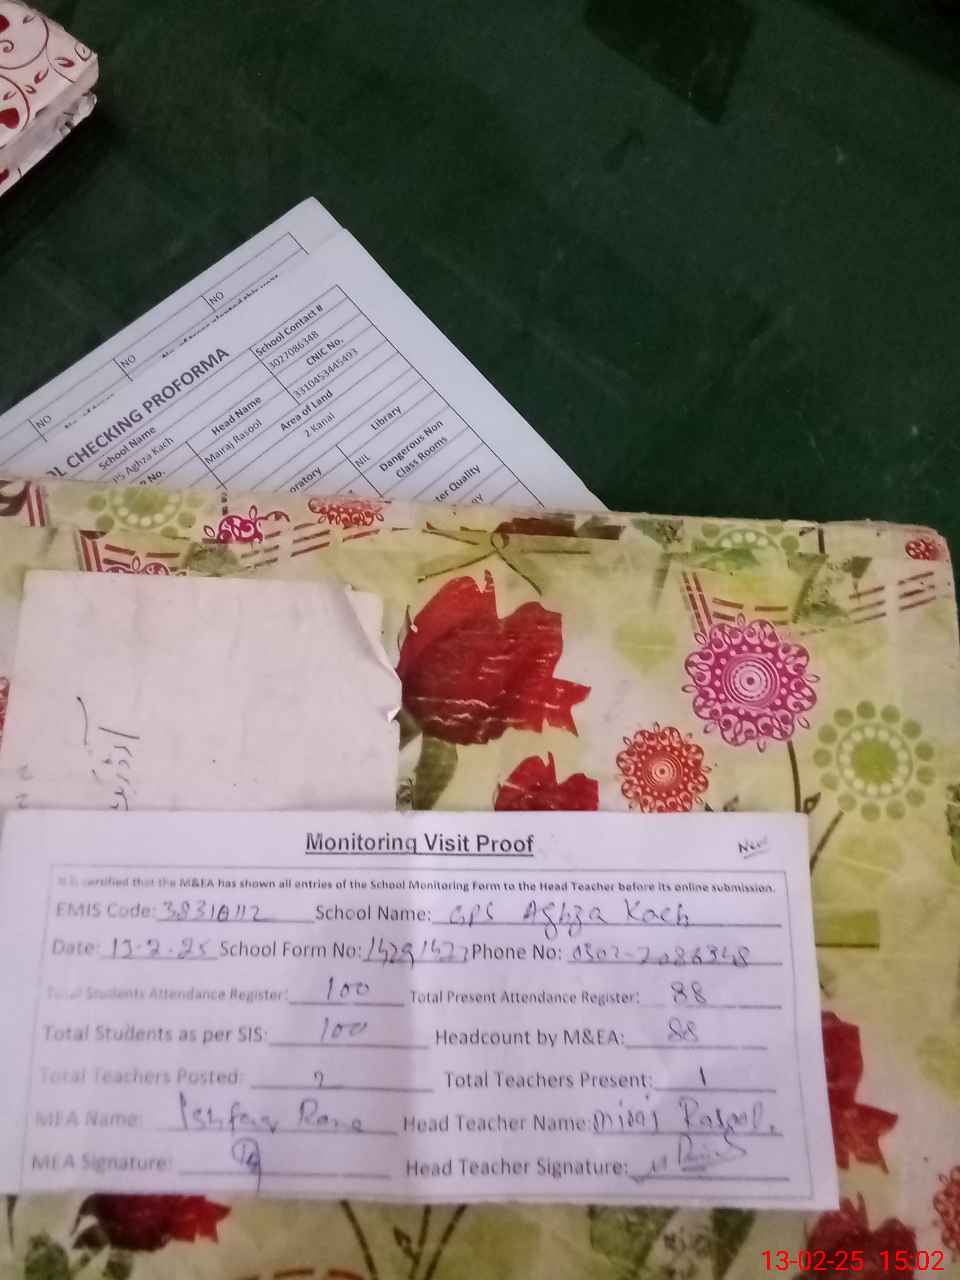 NO
NO
NO
OL CHECKING PROFORMA
School Name
Head Name
School Contact #
PS Aghza Kach
Mairaj Rasool
3027086348
CNIC No.
3310453445493
Area of Land
2 Kanal
No.
oratory
Library
NIL
Dangerous Non
Class Rooms
ter Quality
Monitoring Visit Proof
New
It is certified that the M&EA has shown all entries of the School Monitoring Form to the Head Teacher before its online submission.
EMIS Code: School Name: GPS Aghza Kach
Date: 13-2-25 School Form No: Phone No: 0302-7086348
Total Students Attendance Register: 100 Total Present Attendance Register: 88
Total Students as per SIS: 100 Headcount by M&EA: 88
Total Teachers Posted: 2 Total Teachers Present: 1
MEA Name: Head Teacher Name: Rasool
MEA Signature: Head Teacher Signature:
13-02-25 15:02